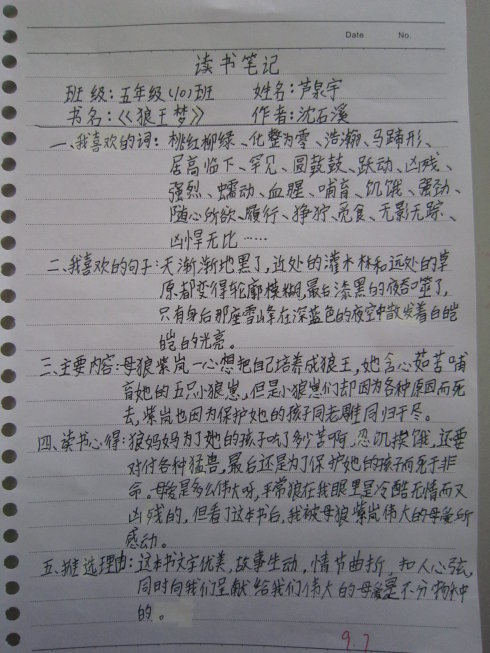 Date No.
读书笔记
班级:五年级(10)班 姓名:芦泉宇
书名:《狼王梦》 作者:沈石溪
一、我喜欢的词:桃红柳绿、化整为零、浩瀚、马蹄形、
居高临下、罕见、圆鼓鼓、跃动、凶残、
强烈、蠕动、血腥、哺育、饥饿、强劲、
随心所欲、履行、狰狞、觅食、无影无踪、
凶悍无比……
二、我喜欢的句子:天渐渐地黑了,近处的灌木林和远处的草
原都变得轮廓模糊,最后漆黑的夜吞噬了,
只有身后那座雪峰在深蓝色的夜空中散发着白皑
皑的光亮。
三、主要内容:母狼紫岚一心想把自己培养成狼王,她含心茹苦哺
育她的五只小狼崽,但是小狼崽们却因为各种原因而死
去,紫岚也因为保护她的孩子同老雕同归于尽。
四、读书心得:狼妈妈为了她的孩子吃了多少苦啊,忍饥挨饿,还要
对付各种猛兽,最后还是为了保护她的孩子而死于非
命。母爱是多么伟大呀,平常狼在我眼里是冷酷无情而又
凶残的,但看了这本书后,我被母狼紫岚伟大的母爱所
感动。
五、推选理由:这本书文字优美,故事生动,情节曲折,扣人心弦,
同时向我们呈献给我们伟大的母爱是不分物种
的。
9.7